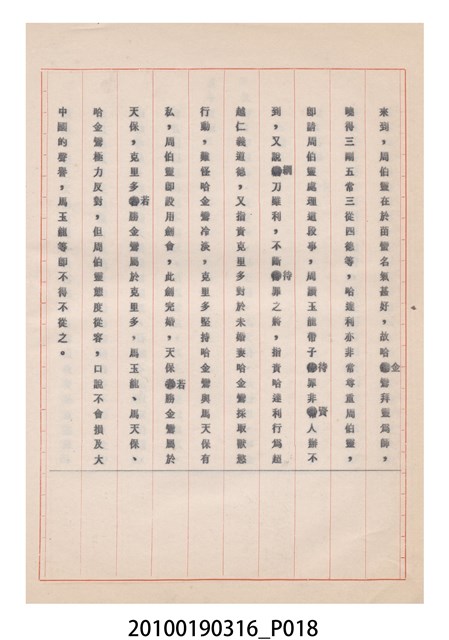 來到，周伯靈在於苗蠻名氣甚好，故哈金鶯拜靈爲師，
曉得三剛五常三從四德等，哈達利亦非常尊重周伯靈，
即請周伯靈處理這段事，周讚玉龍帶子待罪非資人辦不
到，又說剛刀雖利，不斷待罪之將，指責哈達利行爲超
越仁義道德，又指責克里多對於未婚妻哈金鶯採取獸慾
行動，難怪哈金鶯冷淡，克里多堅持哈金鶯與馬天保有
私，周伯靈即設用劍會，此劍完婚，天保若勝金鶯屬於
天保，克里多若勝金鶯屬於克里多，馬玉龍、馬天保、
哈金鶯極力反對，但周伯靈態度從容，口說不會損及大
中國的聲譽，馬玉龍等即不得不從之。
20100190316_P018